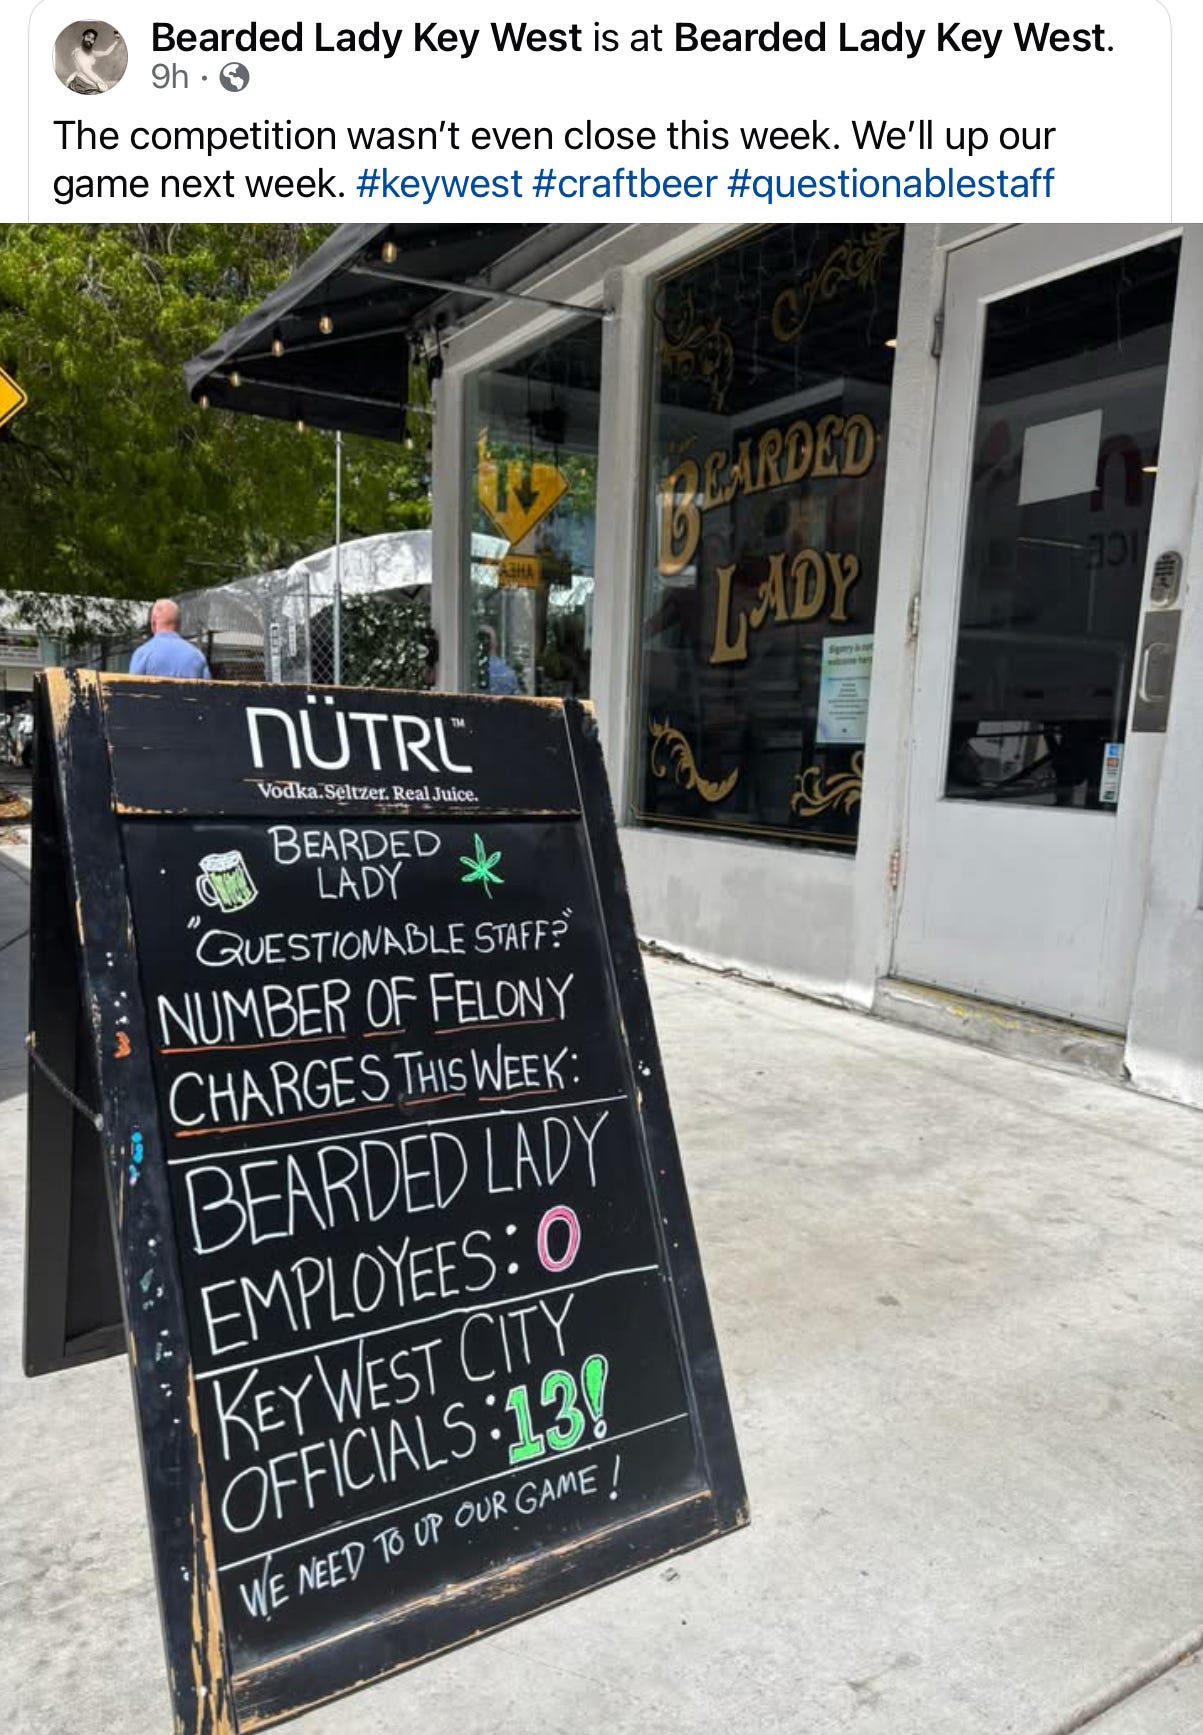 Bearded Lady Key West is at Bearded Lady Key West.
9h ·
The competition wasn't even close this week. We'll up our
game next week. #keywest #craftbeer #questionablestaff
BEARDED
LADY
AHEAD
Bigotry is not
welcome here
NÜTRL™
Vodka. Seltzer. Real Juice.
BEARDED
LADY
"QUESTIONABLE STAFF?"
NUMBER OF FELONY
CHARGES THIS WEEK:
BEARDED LADY
EMPLOYEES: 0
KEY WEST CITY
OFFICIALS: 13!
WE NEED TO UP OUR GAME!